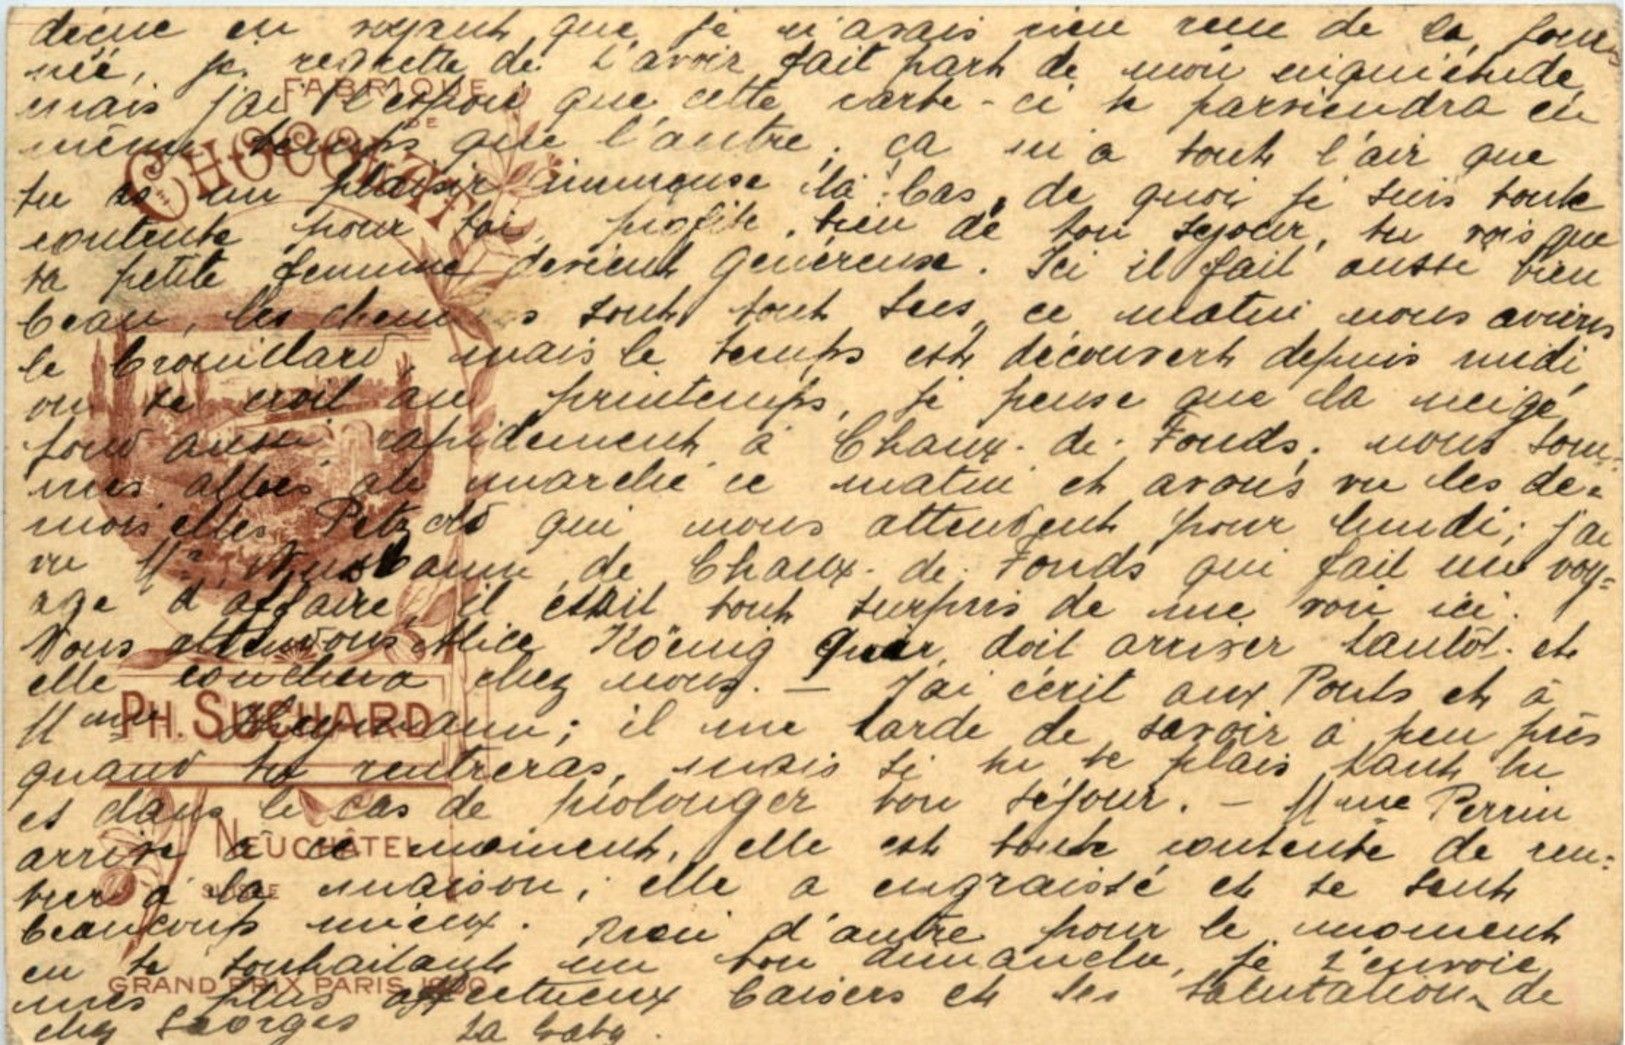 déçue en voyant que je n'avais rien reçu de la jour-
née, je regrette de t'avoir fait part de mon inquiétude
mais j'ai l'espoir que cette carte-ci te parviendra en
même temps que l'autre. ça m'a tout l'air que
tu as un plaisir immense là-bas, de quoi je suis toute
contente pour toi, profite bien de ton séjour, tu vois que
ta petite femme devient généreuse. Ici il fait aussi bien
beau, les chemins sont tout secs, ce matin nous avions
le brouillard, mais le temps est découvert depuis midi,
on se croit au printemps, je pense que la neige
fond aussi rapidement à Chaux-de-Fonds; nous som-
mes allées au marché ce matin et avons vu les de-
moiselles Petzold qui nous attendent pour lundi; j'ai
vu Mr Nussbaum de Chaux-de-Fonds qui fait un voy=
age d'affaire, il était tout surpris de me voir ici.
Nous attendons Alice Köenig qui doit arriver tantôt et
elle couchera chez nous. — J'ai écrit aux Ponts et à
Mme; il me tarde de savoir à peu près
quand tu rentreras, mais si tu te plais tant tu
es dans le cas de prolonger ton séjour. — Mme Perrin
arrive à ce moment, elle est toute contente de ren=
trer à la maison; elle a engraissé et se sent
beaucoup mieux. Rien d'autre pour le moment
en te souhaitant un bon dimanche, je t'envoie
mes plus affectueux baisers et les salutations de
chez Georges ta Gaby.
FABRIQUE
DE
CHOCOLAT
PH. SUCHARD
NEUCHÂTEL
SUISSE
GRAND PRIX PARIS 1900